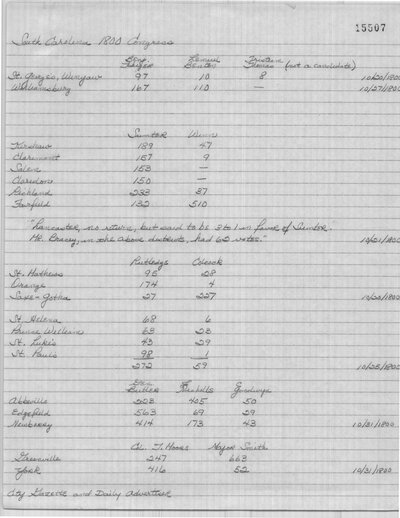 15507
South Carolina 1800 Congress
Benj. Huger Lemuel Benton Tristram Thomas (not a candidate)
St. George's, Winyaw 97 10 8 10/20/1800
Williamsburg 167 110 — 10/27/1800
Sumter Winn
Kershaw 189 47
Claremont 157 9
Salem 153 —
Clarendon 150 —
Richland 233 37
Fairfield 132 510
"Lancaster, no return, but said to be 3 to 1 in favor of Sumter."
Mr. Bracey, in the above districts, had 62 votes." 10/21/1800
Rutledge Colcock
St. Mathews 95 28
Orange 174 4
Saxe-Gotha 27 227 10/23/1800
St. Helena 68 6
Prince William 63 23
St. Luke's 43 29
St. Pauls 98 1
272 59 10/28/1800
Gen. Butler Nichells Goodwyn
Abbeville 223 405 50
Edgefield 563 69 29
Newberry 414 173 43 10/31/1800
Col. T. Moore Major Smith
Greenville 247 663
York 416 52 10/31/1800
City Gazette and Daily Advertiser